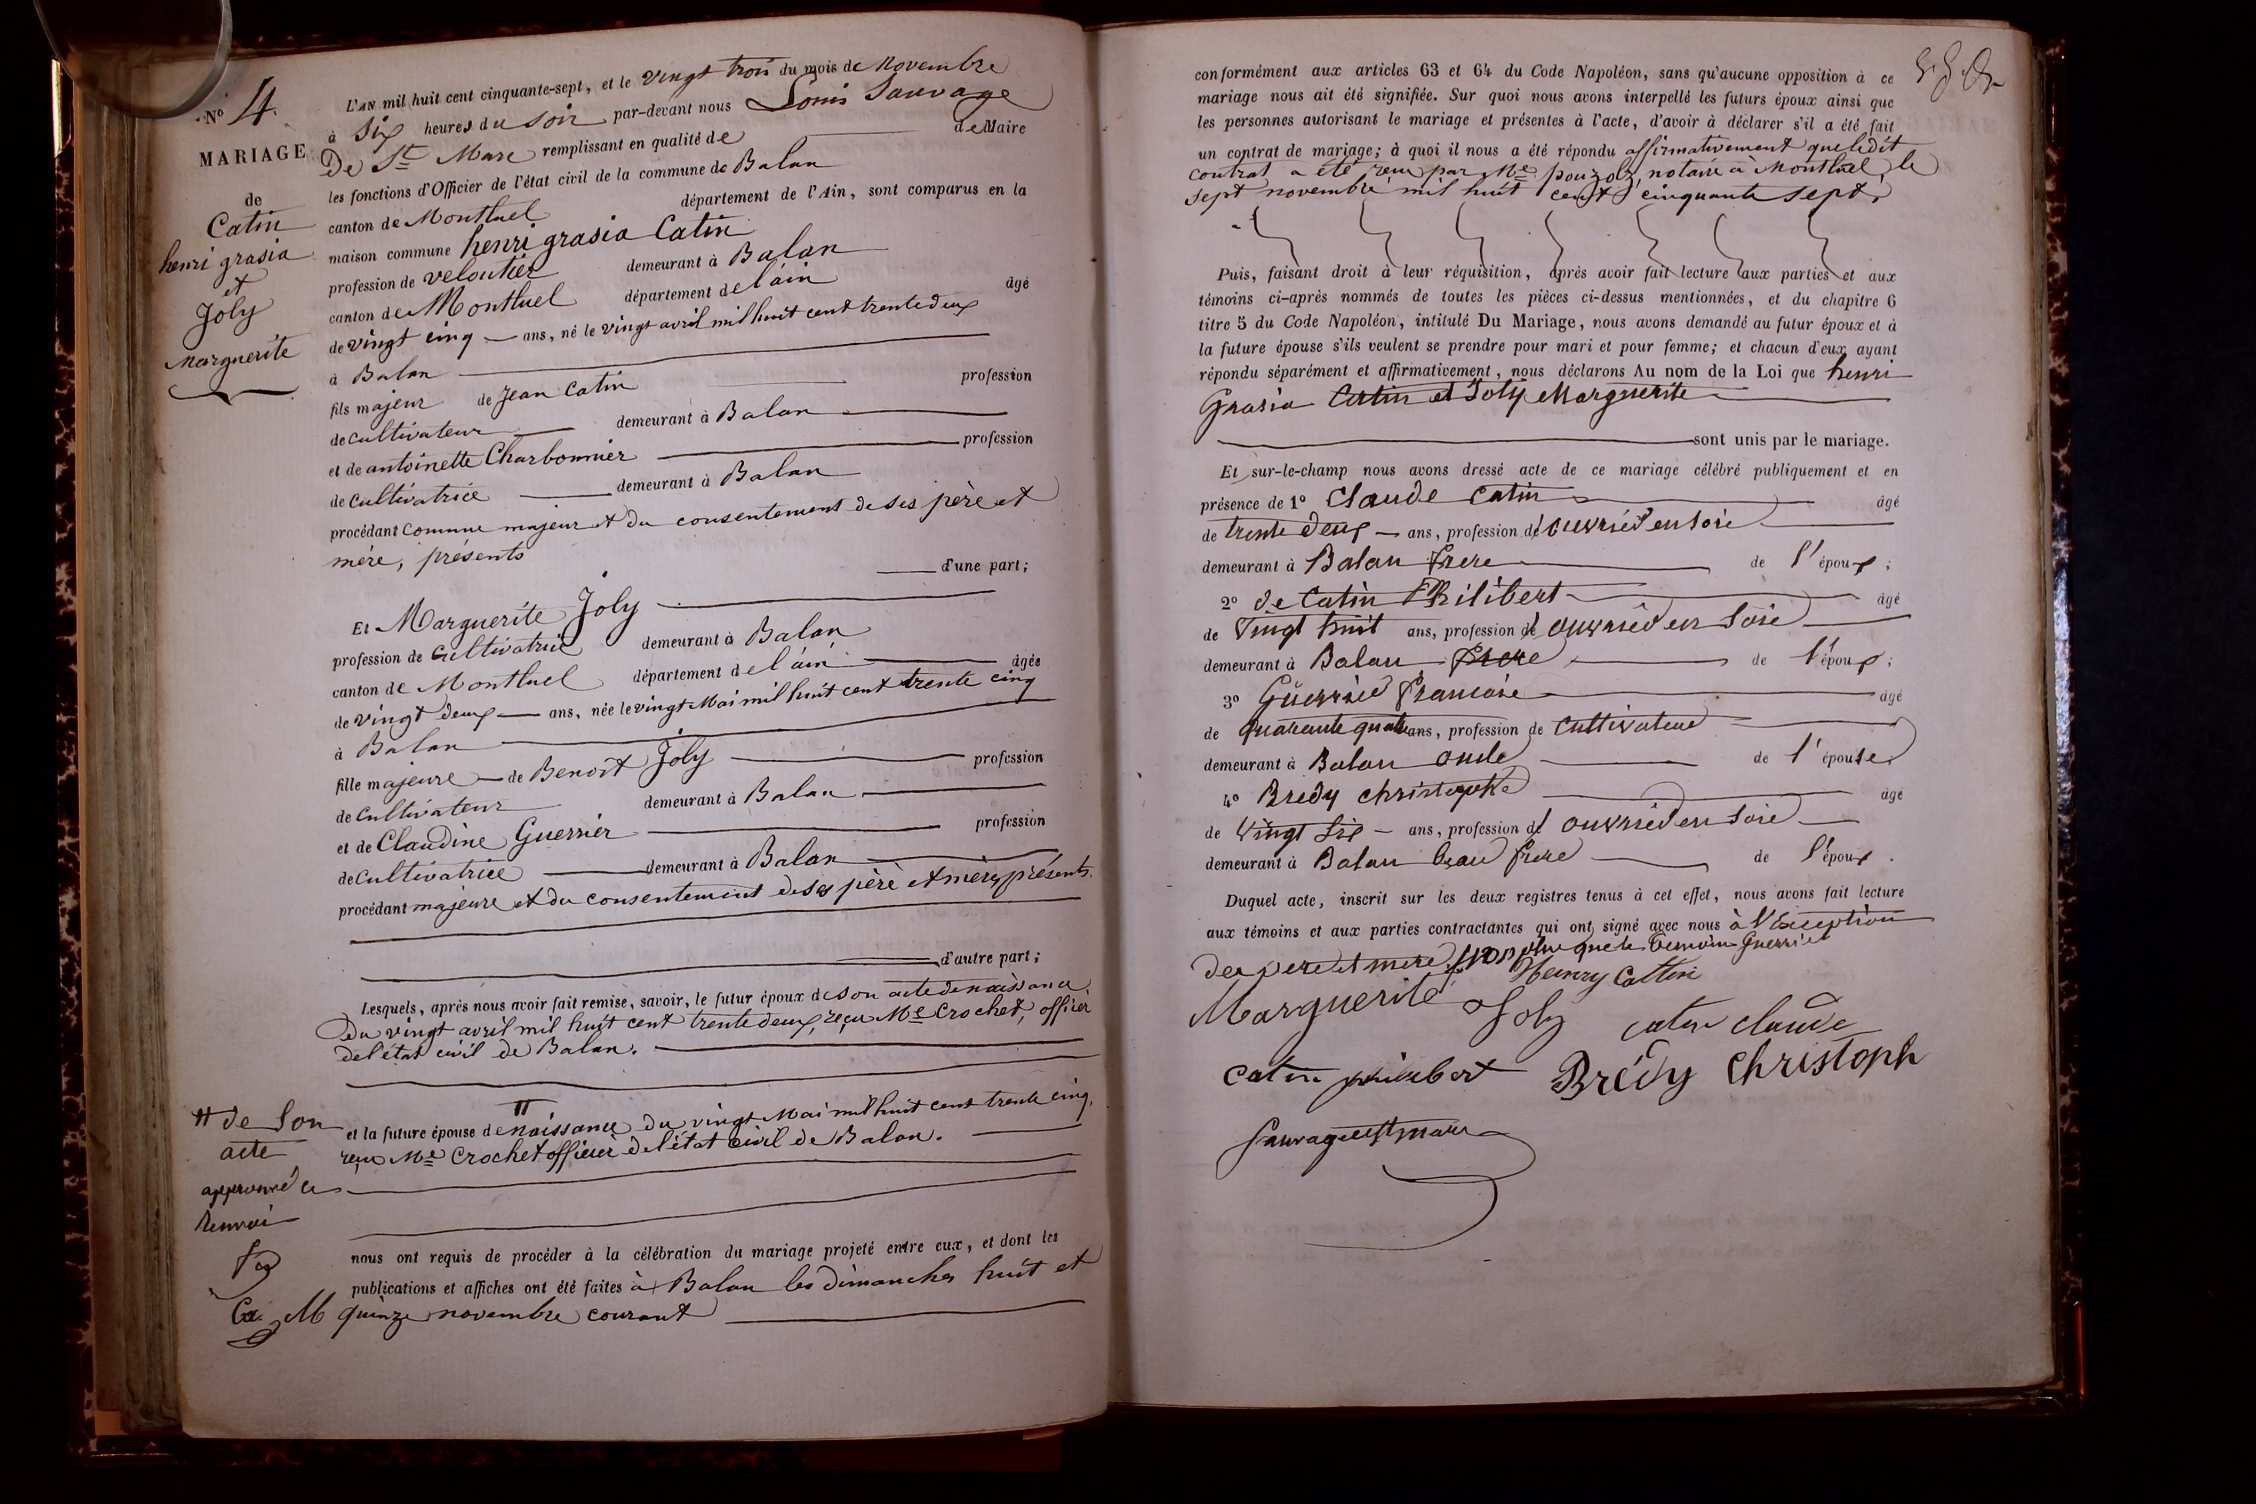 N° 4.
MARIAGE
de
Catin
henri grasia
et
Joly
Marguerite
L'AN mil huit cent cinquante-sept, et le vingt trois du mois de Novembre
à Six heures du Soir par-devant nous Louis Sauvage
De St Marc remplissant en qualité de de Maire
les fonctions d'Officier de l'état civil de la commune de Balan
canton de Montluel département de l'Ain, sont comparus en la
maison commune henri grasia Catin
profession de veloutier demeurant à Balan
canton de Montluel département de l'ain âgé
de vingt cinq ans, né le vingt avril mil huit cent trente deux
à Balan
fils majeur de Jean Catin profession
de cultivateur demeurant à Balan
et de antoinette Charbonnier profession
de cultivatrice demeurant à Balan
procédant Comme majeur et du consentement de ses père et
mère, présents d'une part;
Et Marguerite Joly
profession de Cultivatrice demeurant à Balan
canton de Montluel département de l'ain âgée
de vingt deux ans, née le vingt Mai mil huit cent trente cinq
à Balan
fille majeure de Benoît Joly profession
de Cultivateur demeurant à Balan
et de Claudine Guerrier profession
de cultivatrice demeurant à Balan
procédant majeure et du consentement de ses père et mère, présents.
d'autre part;
Lesquels, après nous avoir fait remise, savoir, le futur époux de son acte de naissance
Du vingt avril mil huit cent trente deux, reçu Me Crochet, officier
de l'état civil de Balan.
de Son
acte
approuvé ce
renvoi
et la future épouse de naissance du vingt Mai mil huit cent trente cinq,
reçu Me Crochet officier de l'état civil de Balan.
nous ont requis de procéder à la célébration du mariage projeté entre eux, et dont les
publications et affiches ont été faites à Balan les dimanches huit et
quinze novembre courant
conformément aux articles 63 et 64 du Code Napoléon, sans qu'aucune opposition à ce
mariage nous ait été signifiée. Sur quoi nous avons interpellé les futurs époux ainsi que
les personnes autorisant le mariage et présentes à l'acte, d'avoir à déclarer s'il a été fait
un contrat de mariage; à quoi il nous a été répondu affirmativement que ledit
contrat a été reçu par Me pouzol, notaire à Montluel, le
sept novembre mil huit cent cinquante sept.
Puis, faisant droit à leur réquisition, après avoir fait lecture aux parties et aux
témoins ci-après nommés de toutes les pièces ci-dessus mentionnées, et du chapitre 6
titre 5 du Code Napoléon, intitulé Du Mariage, nous avons demandé au futur époux et à
la future épouse s'ils veulent se prendre pour mari et pour femme; et chacun d'eux ayant
répondu séparément et affirmativement, nous déclarons Au nom de la Loi que henri
Grasia Catin et Joly Marguerite
sont unis par le mariage.
Et sur-le-champ nous avons dressé acte de ce mariage célébré publiquement et en
présence de 1° Claude Catin âgé
de trente deux ans, profession d'ouvrier en soie
demeurant à Balan frere de l'époux;
2° de Catin Philibert âgé
de Vingt huit ans, profession d'ouvrier en Soie
demeurant à Balan frere de l'époux;
3° Guerrier francoise âgé
de quarante quatre ans, profession de Cultivateur
demeurant à Balan oncle de l'épouse
4° Bredy christophe âgé
de Vingt Six ans, profession d'ouvrier en Soie
demeurant à Balan beau frere de l'époux.
Duquel acte, inscrit sur les deux registres tenus à cet effet, nous avons fait lecture
aux témoins et aux parties contractantes qui ont signé avec nous à l'exception
des pere et mere non plus que le temoin Guerrier
Henry Cattin
Marguerite Joly catin claude
Catin philibert Brédy Christoph
Sauvage de st marc